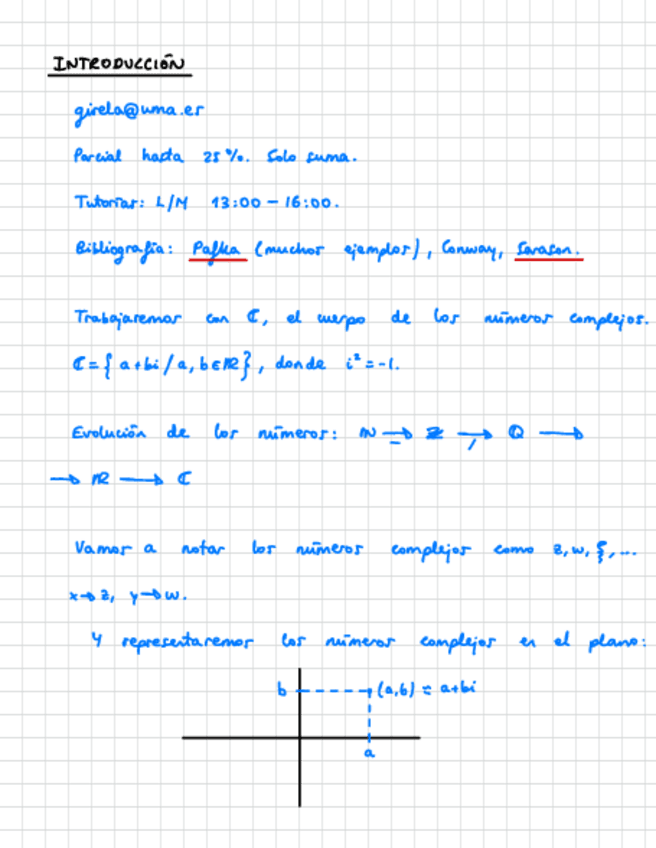 INTRODUCCIÓN
girela@uma.es
Parcial hasta 25%. Solo suma.
Tutorías: L/M 13:00 – 16:00.
Bibliografía: Palka (muchos ejemplos), Conway, Sarason.
Trabajaremos con ℂ, el cuerpo de los números complejos.
ℂ = { a + bi / a, b ∈ ℝ }, donde i² = -1.
Evolución de los números: ℕ →₋ ℤ →, ℚ →
→ ℝ → ℂ
Vamos a notar los números complejos como z, w, ξ, ...
x → z, y → w.
Y representaremos los números complejos en el plano:
b (a,b) ≈ a+bi
a